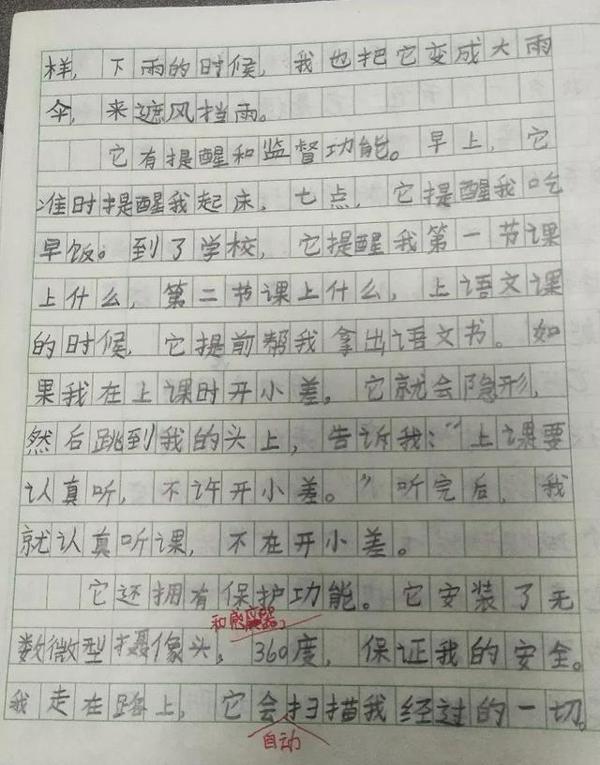 样，下雨的时候，我也把它变成大雨
伞，来遮风挡雨。
它有提醒和监督功能。早上，它
准时提醒我起床，七点，它提醒我吃
早饭。到了学校，它提醒我第一节课
上什么，第二节课上什么，上语文课
的时候，它提前帮我拿出语文书。如
果我在上课时开小差。它就会隐形，
然后跳到我的头上，告诉我：“上课要
认真听，不许开小差。”听完后，我
就认真听课，不在开小差。
它还拥有保护功能。它安装了无
和感应器，
数微型摄像头，360度，保证我的安全。
我走在路上，它会扫描我经过的一切。
自动